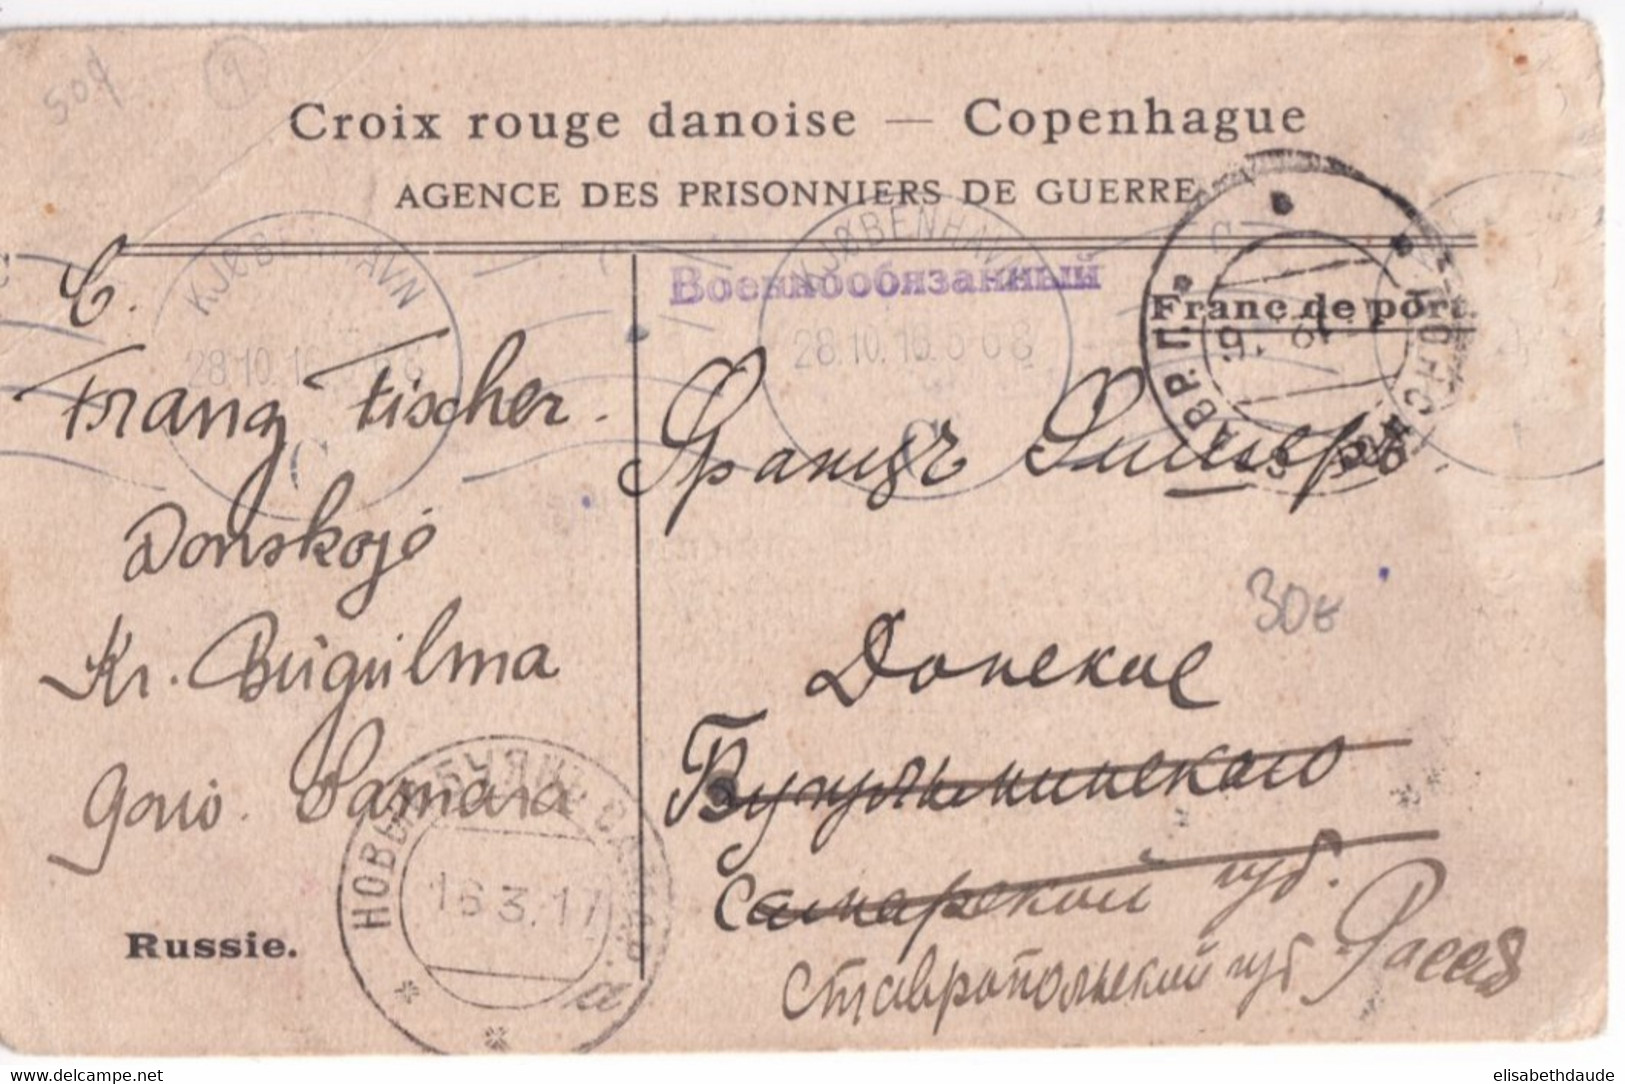 50f
9
Croix rouge danoise — Copenhague
AGENCE DES PRISONNIERS DE GUERRE
KJØBENHAVN
28.10.16.
C
KJØBENHAVN
28.10.16. 5-6 8
C
Военнообязанный
Franc de port.
С.
Franz Fischer.
Donskojé
Kr. Bŭgŭlma
Samara
Russie.
Францъ Фишеръ
30€
Донское
Бугульминского
Самарской губ.
Ставропольский губ Россия
НОВЫЕ БУЯНЫ САМАР.
16.3.17
а
www.delcampe.net
elisabethdaude